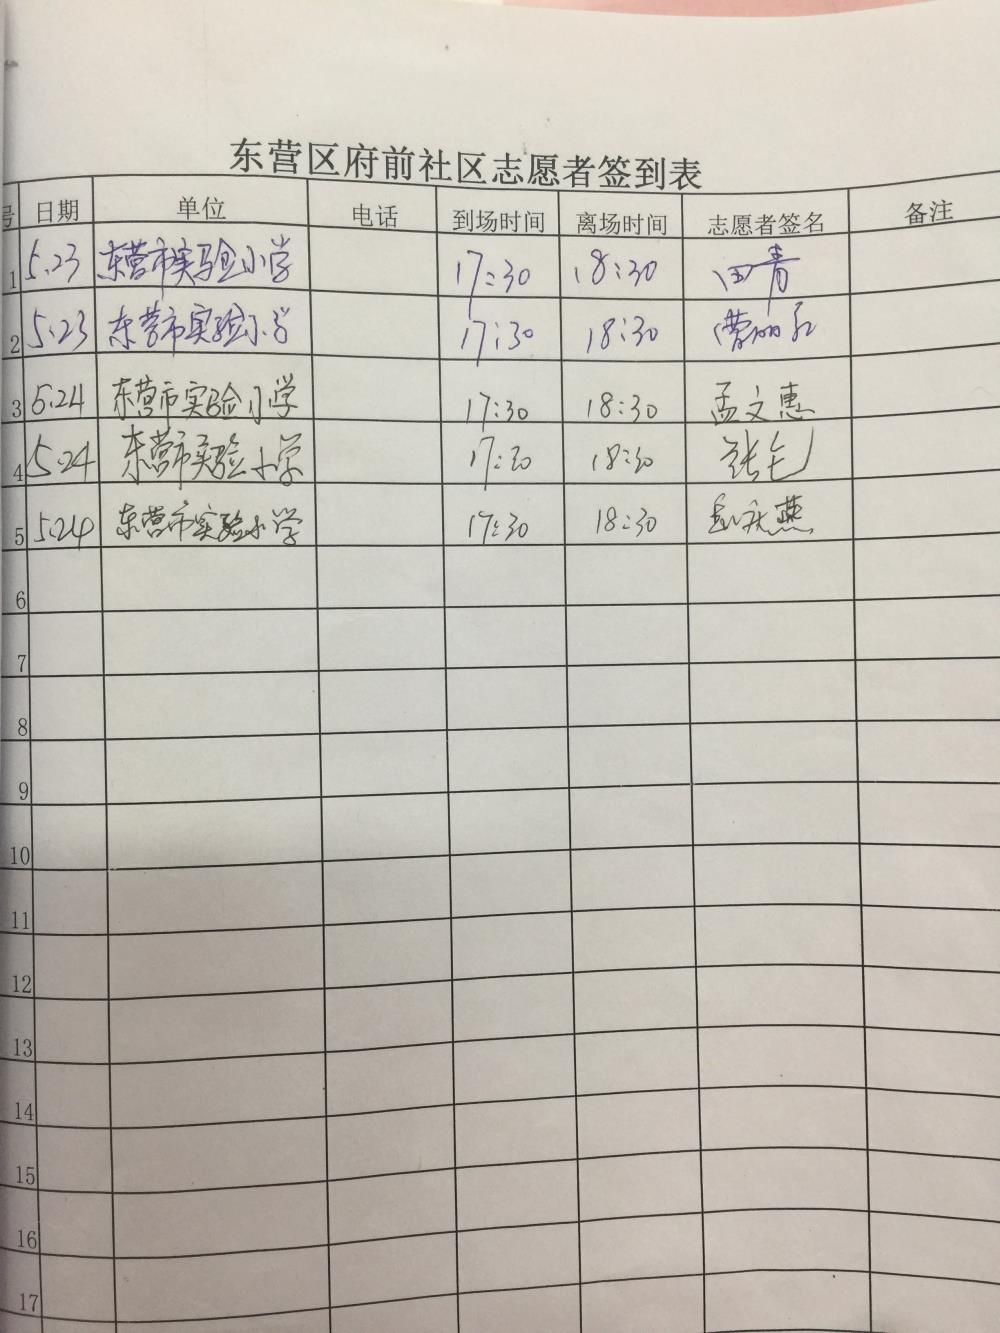 东营区府前社区志愿者签到表
号 日期 单位 电话 到场时间 离场时间 志愿者签名 备注
1 5.23 东营市实验小学 17:30 18:30 田青
2 5.23 东营市实验小学 17:30 18:30 曹丽
3 5.24 东营市实验小学 17:30 18:30 孟文惠
4 5.24 东营市实验小学 17:30 18:30 张
5 5.24 东营市实验小学 17:30 18:30 燕
6
7
8
9
10
11
12
13
14
15
16
17